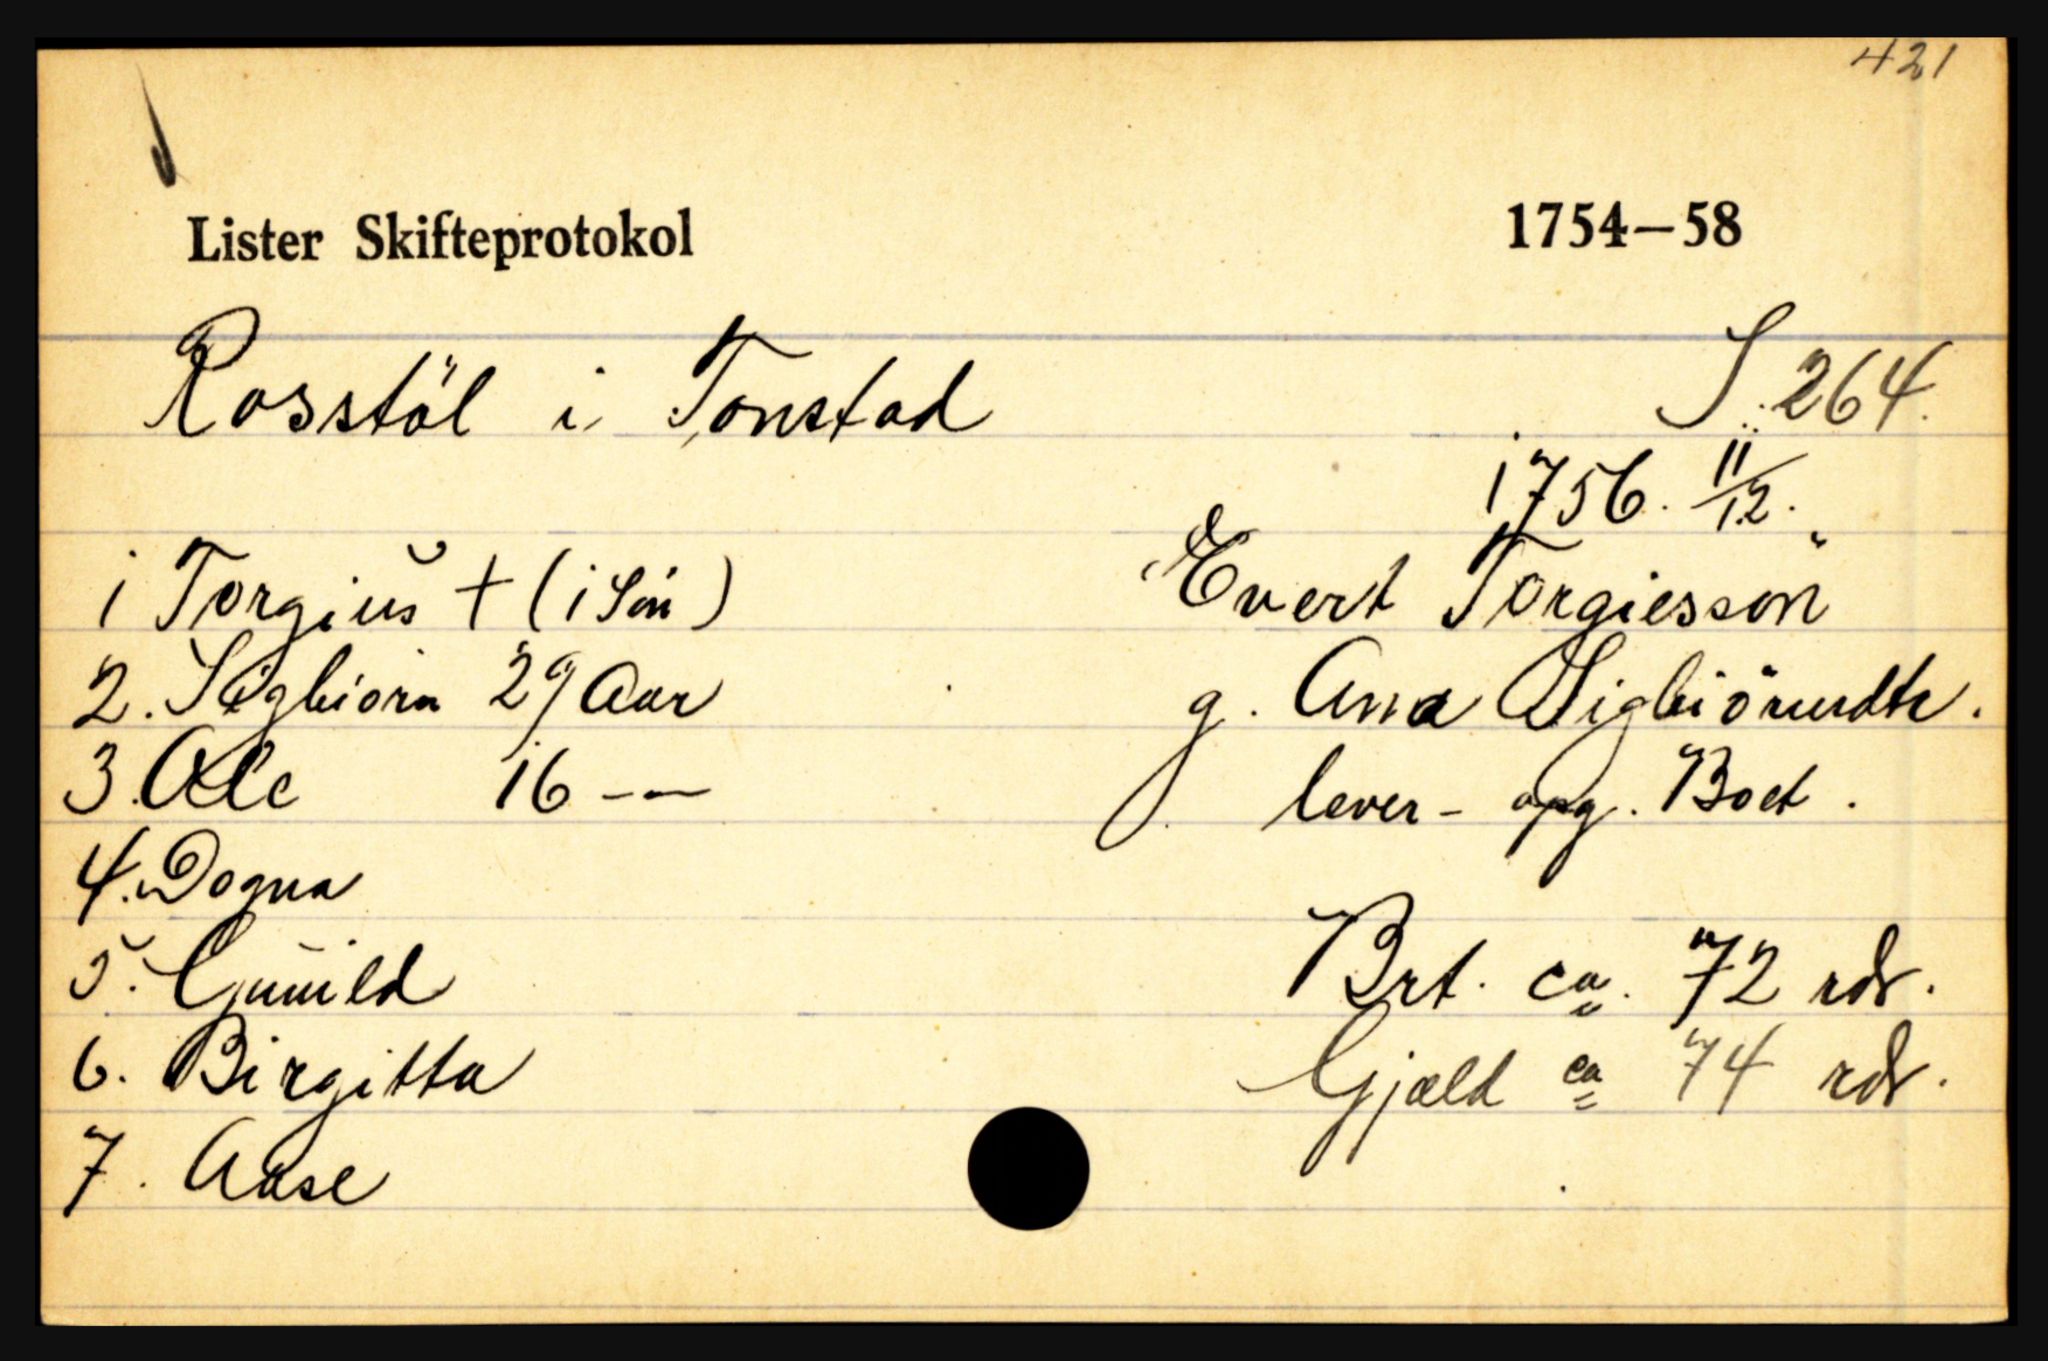 421
Lister Skifteprotokol 1754—58
Rosstöl i Tonstad S. 264.
1756. 11/12.
1 Torgius + (1 Sön) Evert Torgiesson
2. Sigbiörn 29 Aar g. Ana Sigbiörnsdtr.
3. Ole 16 -— lever - opg. Boet.
4. Dogna
5. Gunild Brt. ca. 72 rdr.
6. Birgitta Gjæld ca 74 rdr.
7. Aase